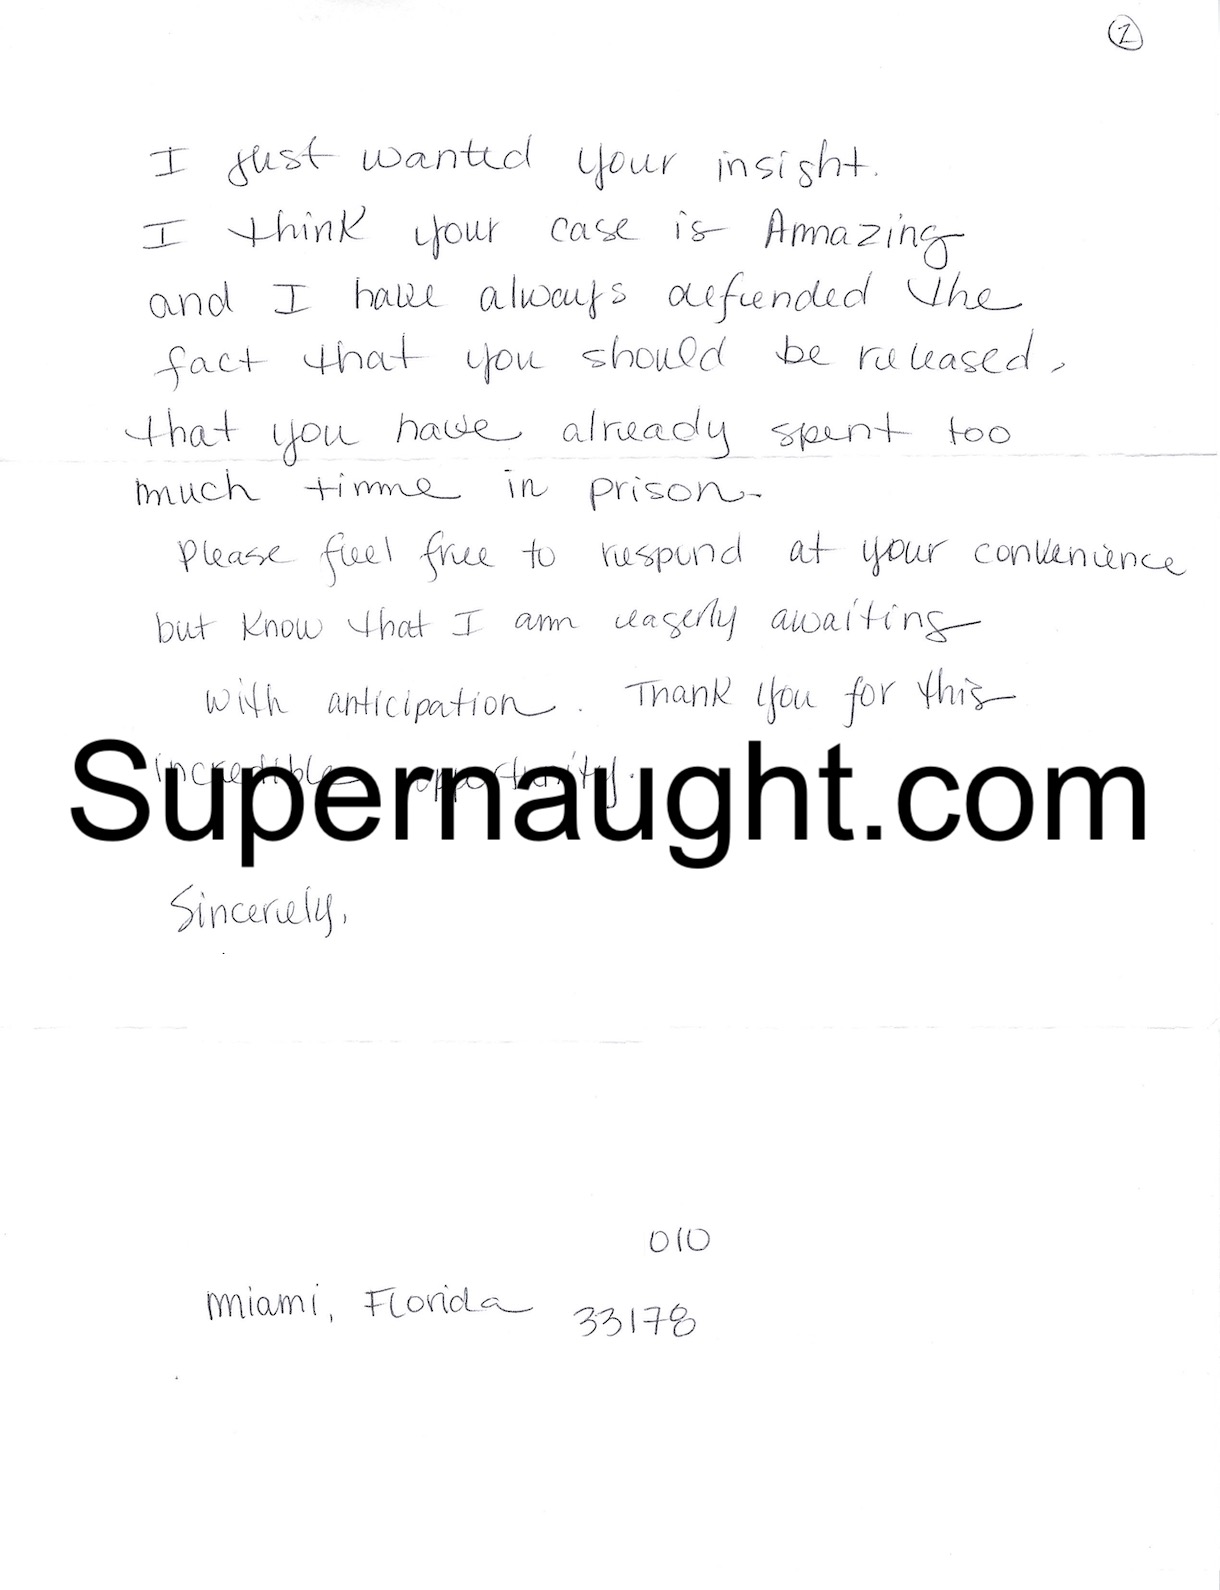 2
I just wanted your insight.
I think your case is Amazing
and I have always defended the
fact that you should be released,
that you have already spent too
much time in prison.
Please feel free to respond at your convenience
but know that I am eagerly awaiting
with anticipation. Thank you for this
incredible opportunity.
Supernaught.com
Sincerely,
010
Miami, Florida 33178